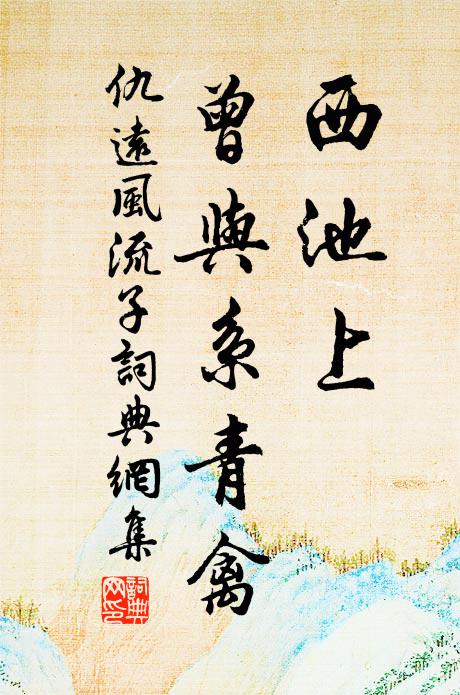 西池上
曾與系青禽
仇遠風流子詞典網集
詞典